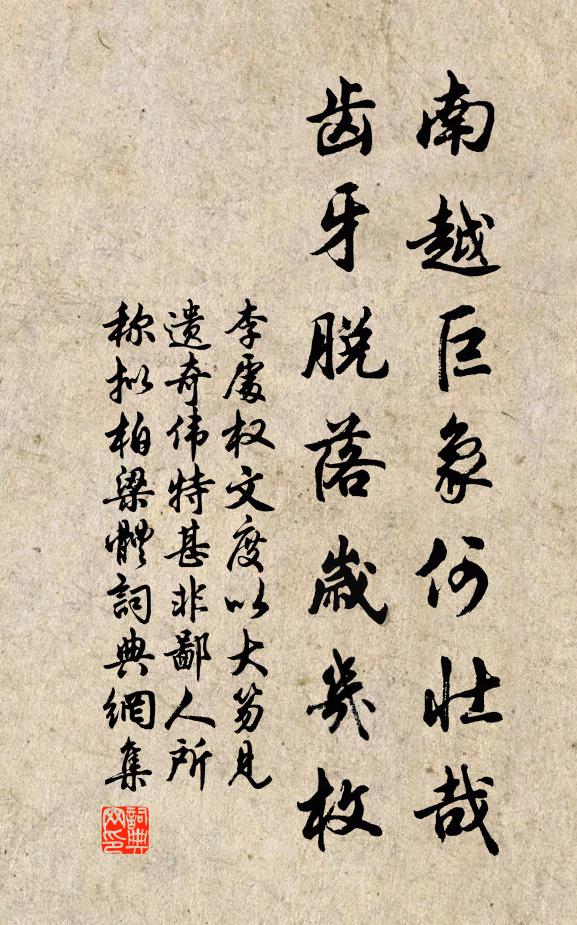 南越巨象何壮哉
齿牙脱落岁几枚
李处权文度以大笏见
遗奇伟特甚非鄙人所
称拟柏梁體詞典網集
詞典网印